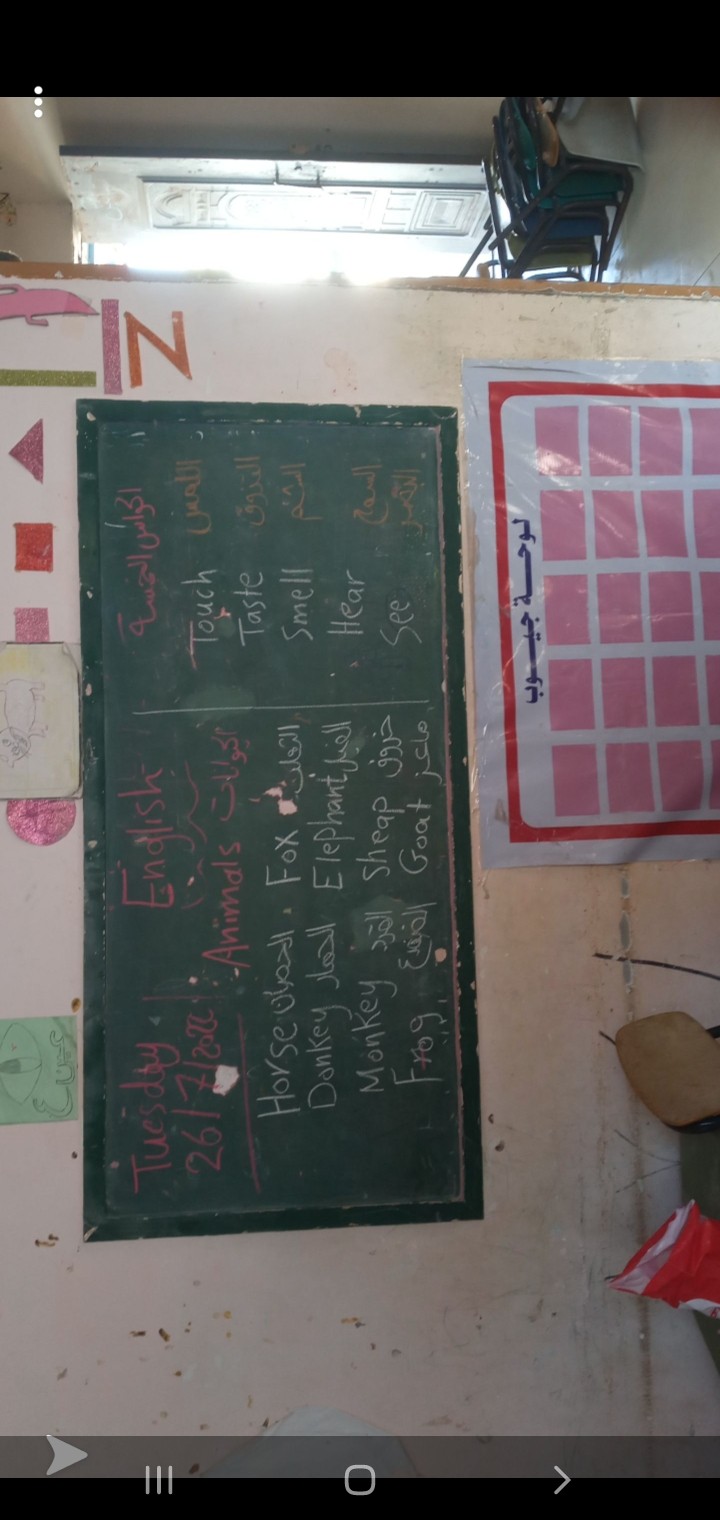 Tuesday English
26/7/2022
Animals الحيوانات
Horse الحصان Fox الثعلب
Donkey الحمار Elephant الفيل
Monkey القرد Sheap خروف
Frog الضفدع Goat ماعز
الحواس الخمسة
Touch اللمس
Taste التذوق
Smell الشم
Hear السمع
See
لوحة جيوب
N